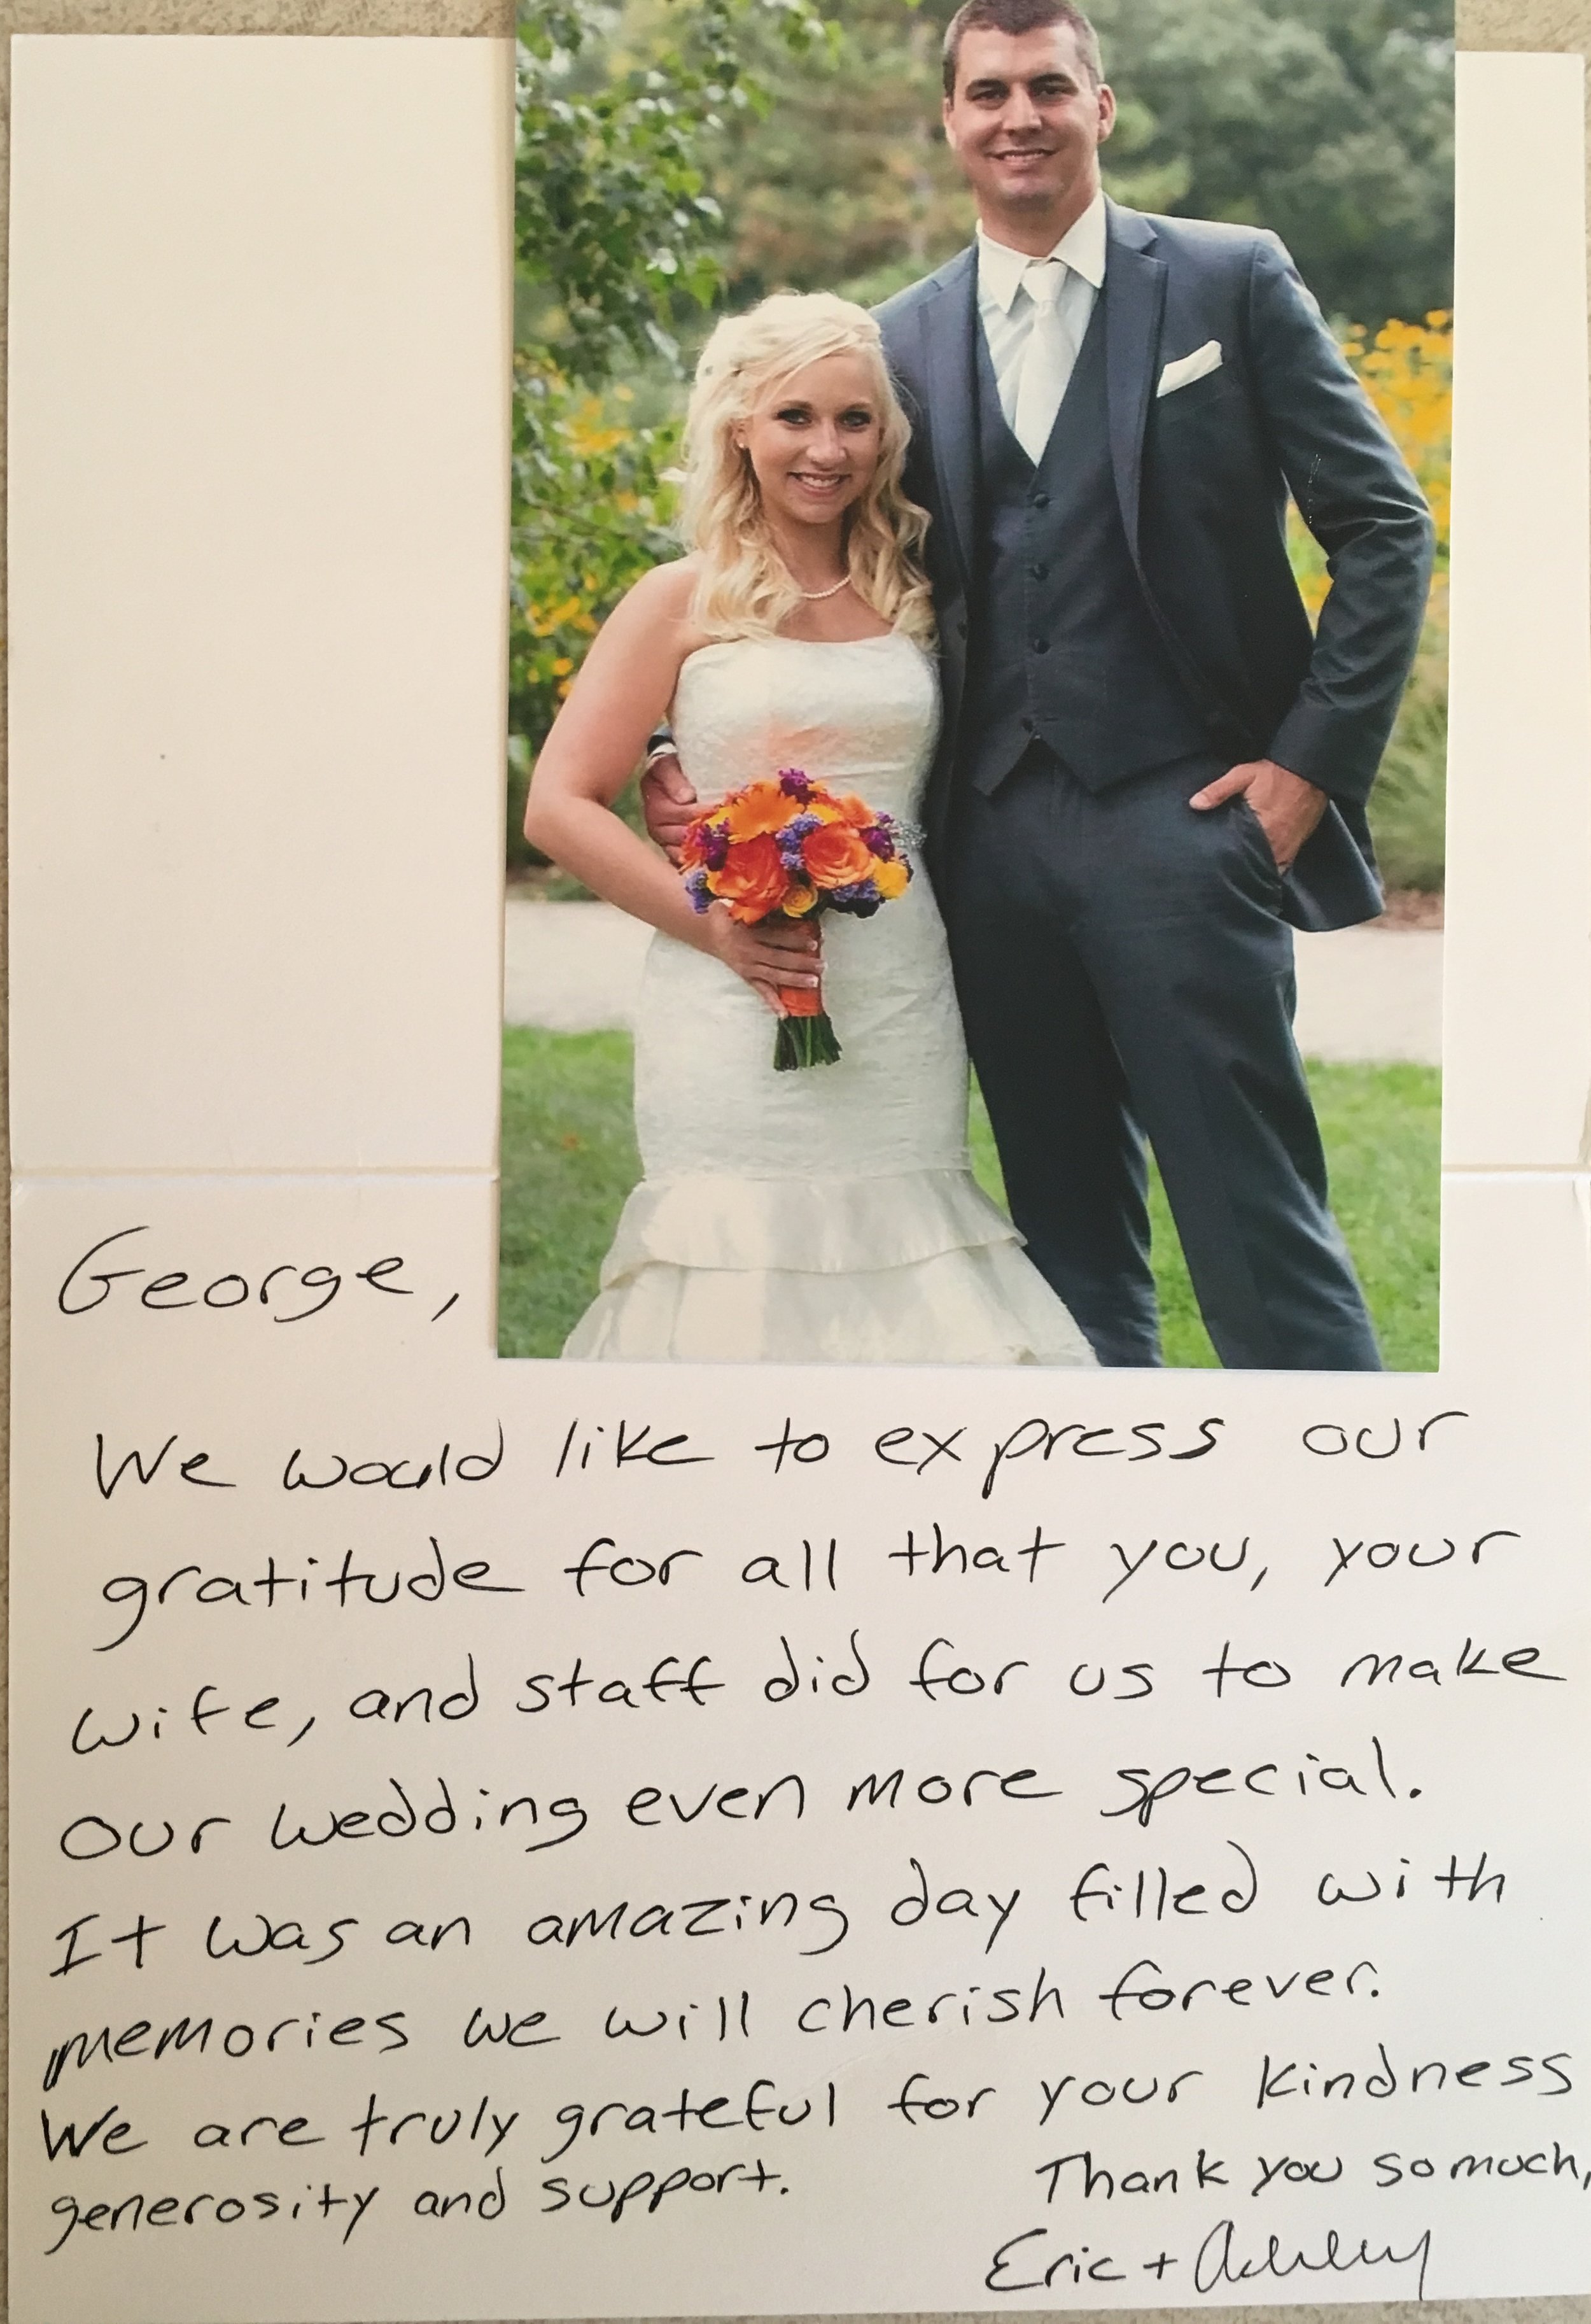 George,
We would like to express our
gratitude for all that you, your
wife, and staff did for us to make
our wedding even more special.
It was an amazing day filled with
memories we will cherish forever.
We are truly grateful for your kindness
generosity and support.
Thank you so much,
Eric + Ashley